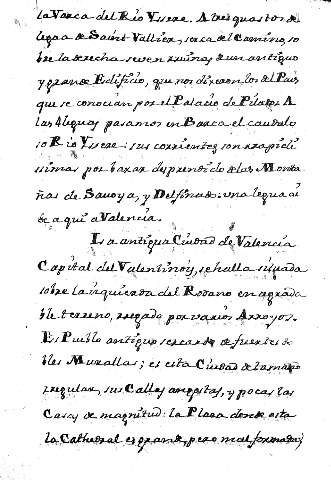 la Varca del Rio Yssere. A tres quartos de
legua de Saint Vallier, cerca del Camino, so
bre la derecha se ven ruinas de un antiguo
y grande Edificio, que nos dixeron los del Pais
que se conocian por el Palacio de Pilatos. A
las 4 leguas pasamos en Barca el caudalo
so Rio Yssere: sus corrientes son rapidi
ssimas por baxar desprendido de las Monta
ñas de Savoya, y Delfinado: una legua ai
de aqui a Valencia.
La antigua Ciudad de Valencia
Capital del Valentinoy, se halla situada
sobre la izquierda del Rodano en agrada
ble terreno, regado por varios Arroyos.
Es Pueblo antiguo cercado de fuertes do
bles Murallas; es esta Ciudad de tamaño
regular, sus Calles angostas, y pocas las
Casas de magnitud: la Plaza donde esta
la Cathedral es grande, pero mal formada;